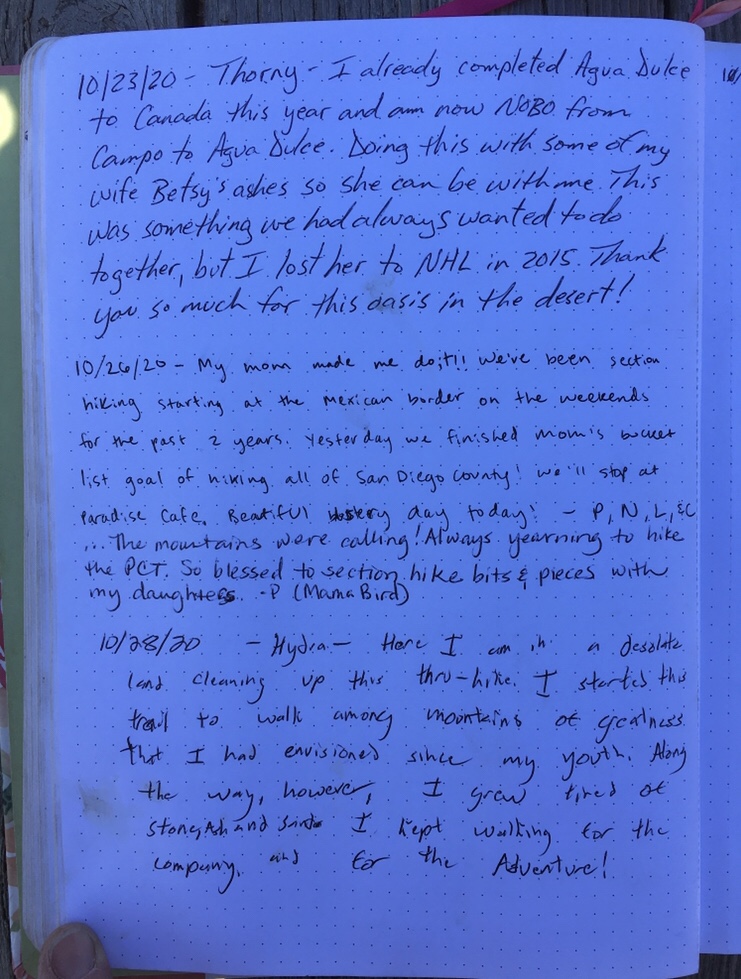 10/23/20 - Thorny - I already completed Agua Dulce
to Canada this year and am now NOBO from
Campo to Agua Dulce. Doing this with some of my
wife Betsy's ashes so she can be with me. This
was something we had always wanted to do
together, but I lost her to NHL in 2015. Thank
you so much for this oasis in the desert!
10/26/20 - My mom made me do it!! We've been section
hiking starting at the Mexican border on the weekends
for the past 2 years. Yesterday we finished mom's bucket
list goal of hiking all of San Diego County! We'll stop at
Paradise Cafe. Beatiful day today! - P, N, L, & C
... The mountains were calling! Always yearning to hike
the PCT. So blessed to section hike bits & pieces with
my daughters. -P (Mama Bird)
10/28/20 - Hydra - Here I am in a desolate
land cleaning up this thru-hike. I started this
trail to walk among mountains of greatness
that I had envisioned since my youth. Along
the way, however, I grew tired of
stone, Ash and I kept walking for the
company, and for the Adventure!
10/